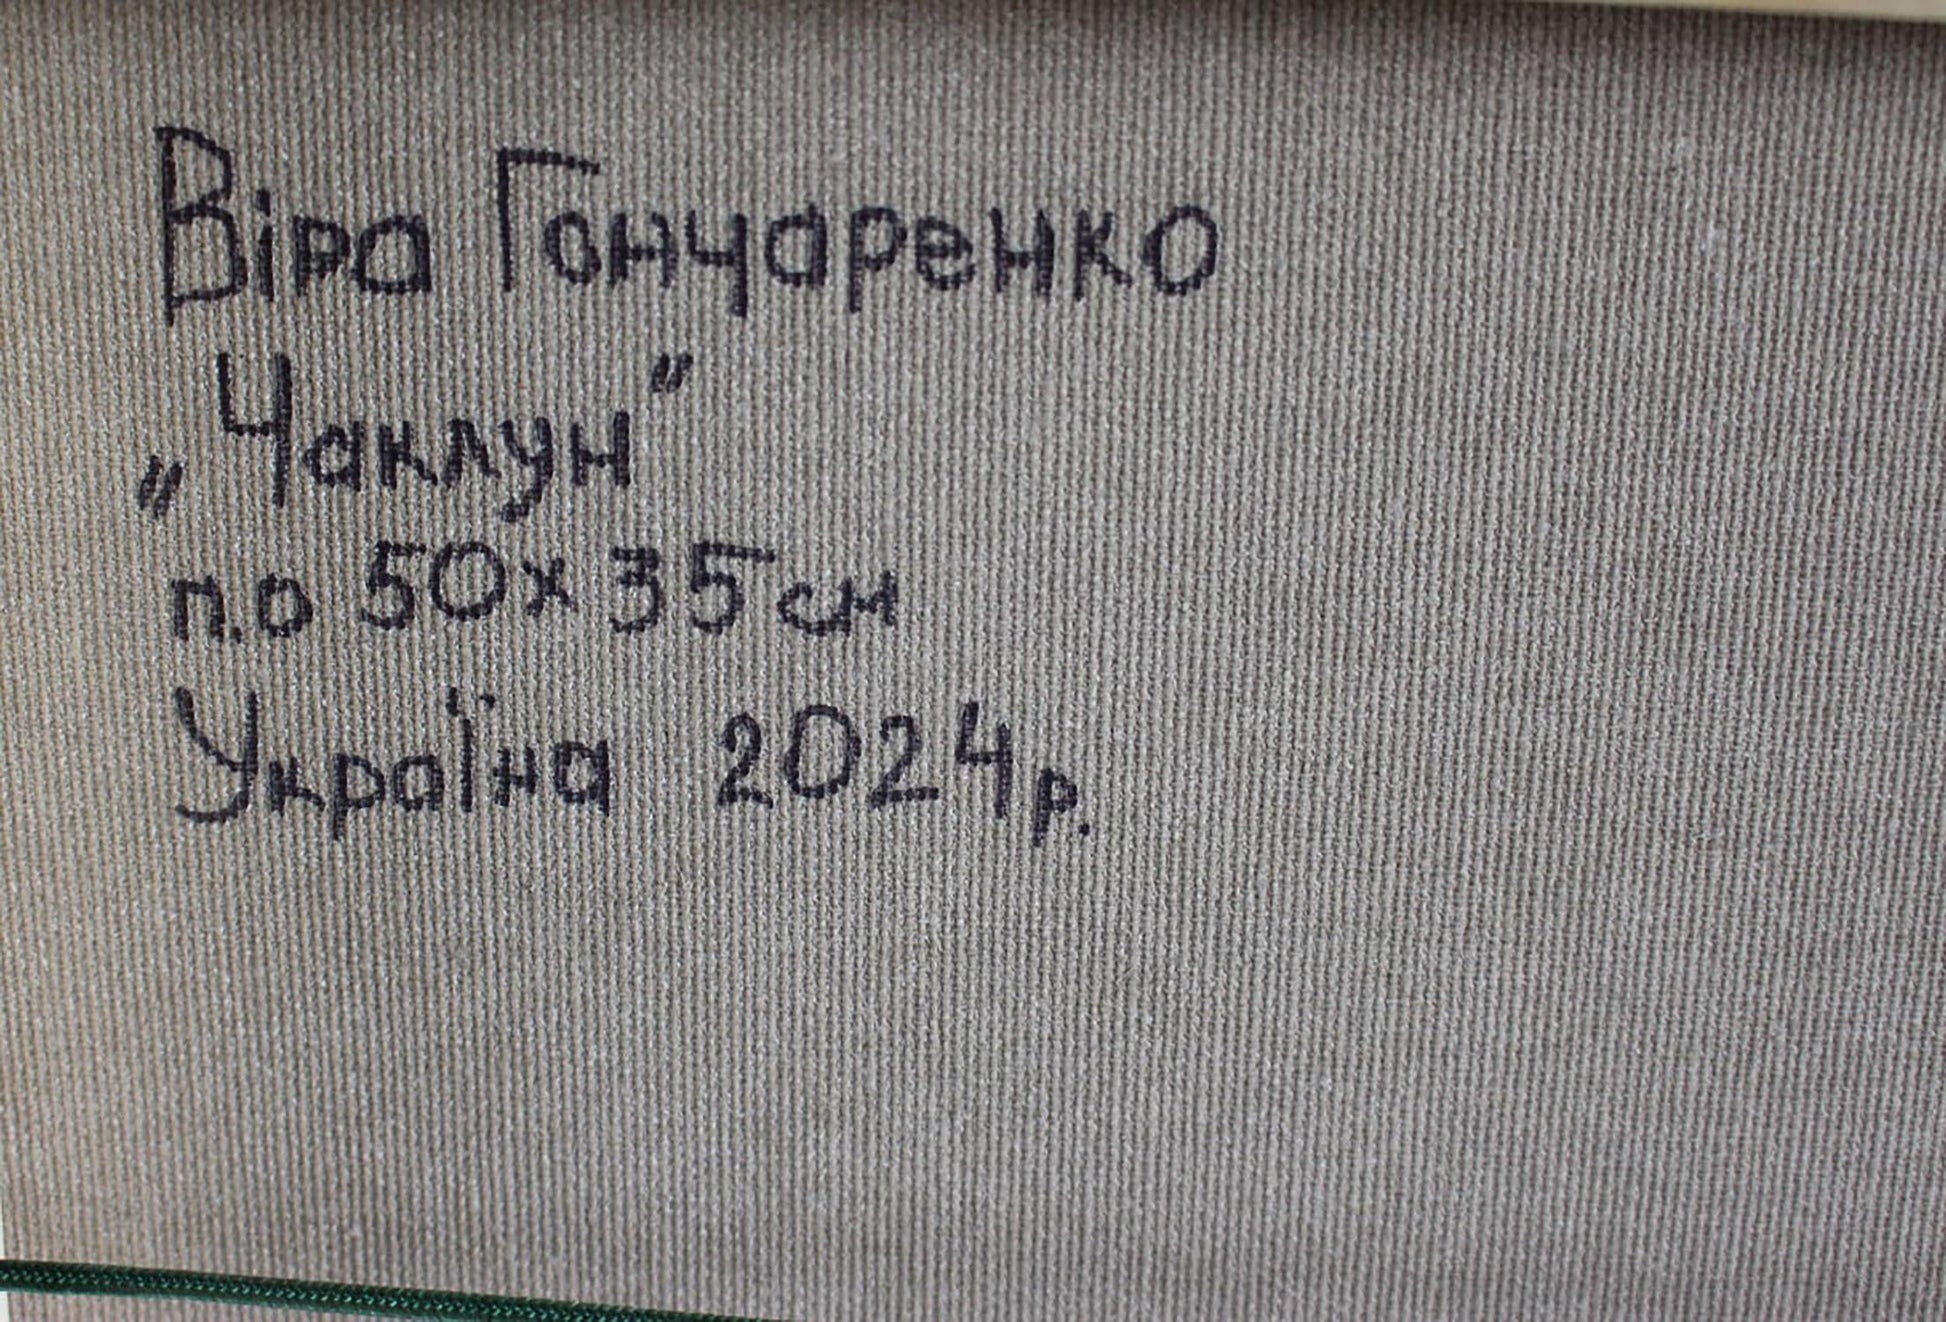 Віра Гончаренко
„Чаклун"
п.о 50х35см
Україна 2024р.